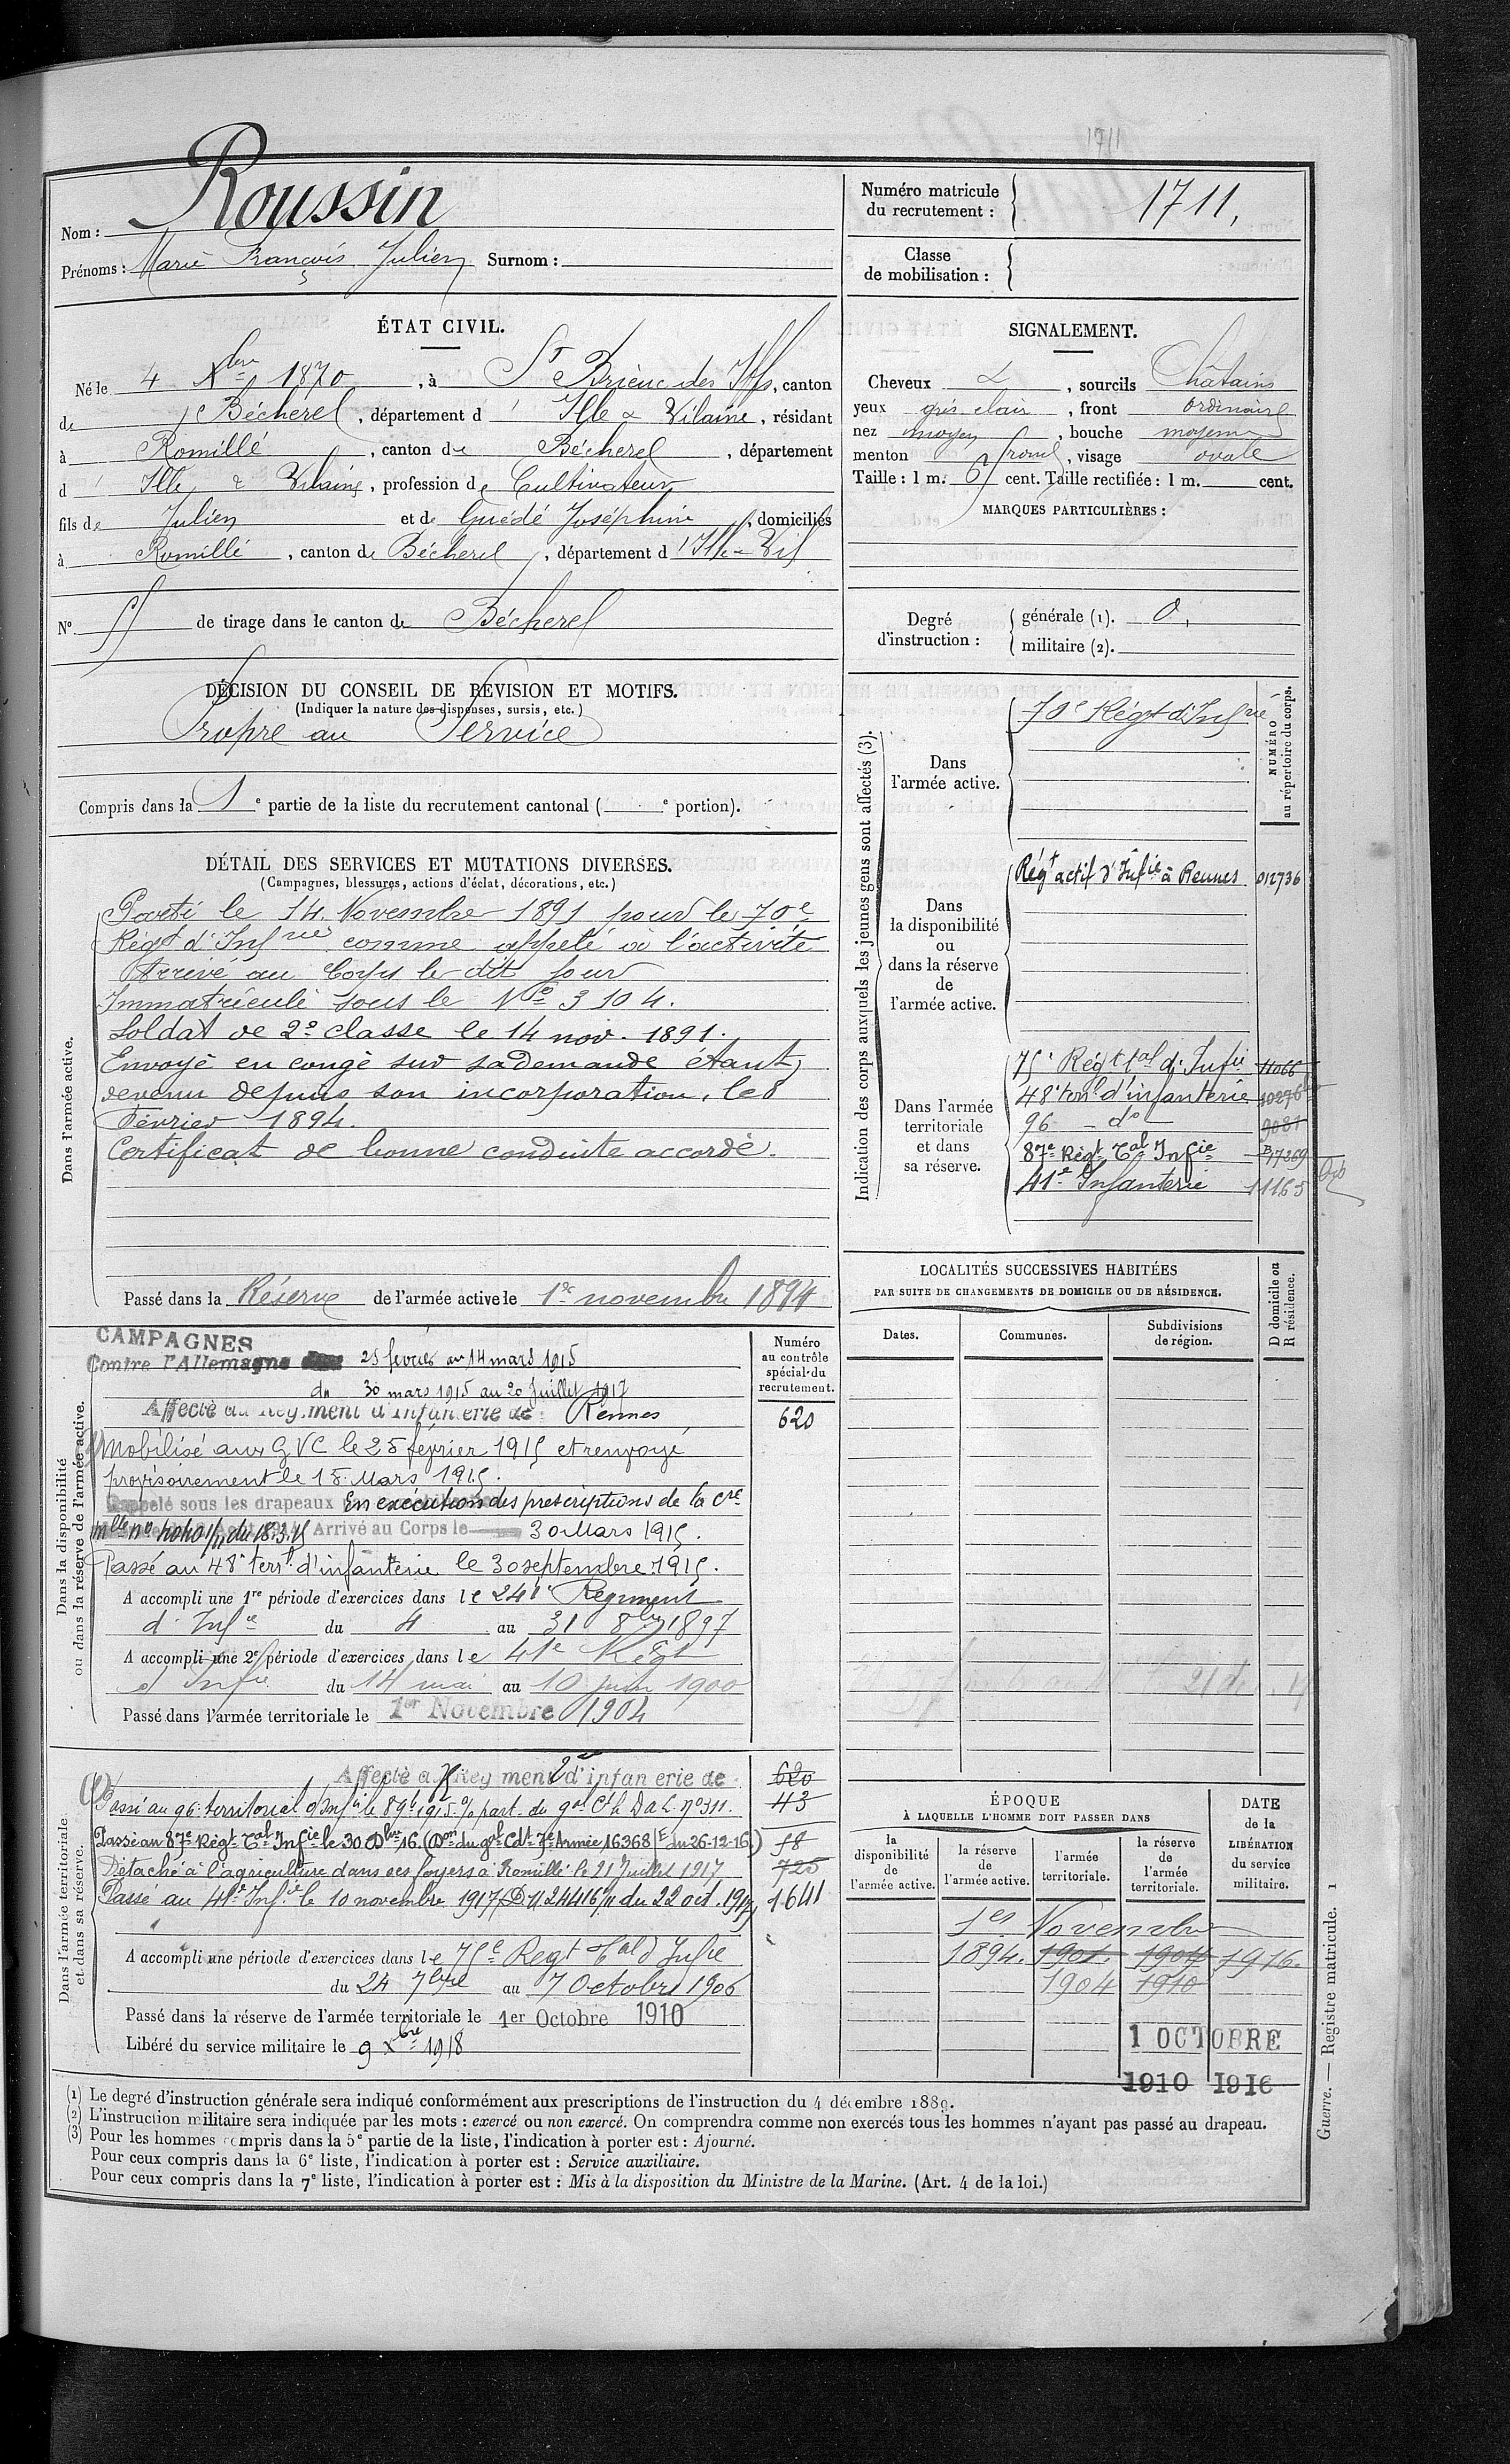 1711
Nom : Roussin
Prénoms : Marie François Julien Surnom :
Numéro matricule du recrutement : 1711.
Classe de mobilisation :
ÉTAT CIVIL.
Né le 4 Xbre 1870, à St Brieuc des Iffs, canton
de Bécherel, département d' Ille & Vilaine, résidant
à Romillé, canton de Bécherel, département
d' Ille & Vilaine, profession de Cultivateur
fils de Julien et de Guédé Joséphine, domiciliés
à Romillé, canton de Bécherel, département d' Ille & Vil
N° de tirage dans le canton de Bécherel
SIGNALEMENT.
Cheveux &, sourcils Châtains
yeux gris clair, front ordinaire
nez moyen, bouche moyenne
menton rond, visage ovale
Taille : 1 m. cent. Taille rectifiée : 1 m. cent.
MARQUES PARTICULIÈRES :
Degré d'instruction : générale (1). 0.
militaire (2).
DÉCISION DU CONSEIL DE REVISION ET MOTIFS.
(Indiquer la nature des dispenses, sursis, etc.)
Propre au Service
Compris dans la 1e partie de la liste du recrutement cantonal ( e portion).
DÉTAIL DES SERVICES ET MUTATIONS DIVERSES.
(Campagnes, blessures, actions d'éclat, décorations, etc.)
Dans l'armée active.
Porté le 14 Novembre 1891 pour le 70e
Régt d'Infrie comme appelé à l'activité
Arrivé au Corps le dit jour
Immatriculé sous le No 3104.
Soldat de 2e classe le 14 nov. 1891.
Envoyé en congé sur sa demande étant
devenu depuis son incorporation, le 8
Février 1894.
Certificat de bonne conduite accordé.
Passé dans la Réserve de l'armée active le 1er novembre 1894
Indication des corps auxquels les jeunes gens sont affectés (3).
NUMÉRO au répertoire du corps.
Dans l'armée active.
70e Régt d'Infrie
Dans la disponibilité ou dans la réserve de l'armée active.
Régt actif d'Infie à Rennes 012736
Dans l'armée territoriale et dans sa réserve.
75e Régt tal d'Infie 11066
48e terrl d'infanterie 10276
96 - do - 9081
87e Régt Tal Infie B17269
41e Infanterie 11165
LOCALITÉS SUCCESSIVES HABITÉES
PAR SUITE DE CHANGEMENTS DE DOMICILE OU DE RÉSIDENCE.
Dates. Communes. Subdivisions de région. D domicile ou R résidence.
Dans la disponibilité ou dans la réserve de l'armée active.
Numéro au contrôle spécial du recrutement.
CAMPAGNES
Contre l'Allemagne 25 février au 14 mars 1915
du 30 mars 1915 au 20 Juillet 1917
Affecté au Régiment d'Infanterie de Rennes 620
Mobilisé aux GVC le 25 février 1915 et renvoyé
provisoirement le 15 Mars 1915.
Rappelé sous les drapeaux En exécution des prescriptions de la cre
mlle no du 18.3.15 Arrivé au Corps le 30 Mars 1915.
Passé au 48e terrl d'infanterie le 30 septembre 1915.
A accompli une 1re période d'exercices dans le 241e Régiment
d'Infie du 4 au 31 8bre 1897
A accompli une 2e période d'exercices dans le 41e Régt
d'Infie du 14 mai au 10 juin 1900
Passé dans l'armée territoriale le 1er Novembre 1904
Dans l'armée territoriale et dans sa réserve.
Affecté au Régiment d'infanterie de 620
Passé au 96 territorial d'Infie le 1915 part. du gal Ct la D a L no 311. 43
Passé au 87e Régt Tal Infie le 30 Dbre 16. (Don du gal Cdt 7e Armée 16368/E du 26-12-16.) 58
Détaché à l'agriculture dans ses foyers à Romillé le 21 Juillet 1917 725
Passé au 41e Infie le 10 novembre 1917 (D M 24416/11 du 22 oct. 1917) 1641
A accompli une période d'exercices dans le 75e Régt Tal d'Infie
du 24 7bre au 7 Octobre 1906
Passé dans la réserve de l'armée territoriale le 1er Octobre 1910
Libéré du service militaire le 9 Xbre 1918
ÉPOQUE
À LAQUELLE L'HOMME DOIT PASSER DANS
DATE de la LIBÉRATION du service militaire.
la disponibilité de l'armée active. la réserve de l'armée active. l'armée territoriale. la réserve de l'armée territoriale.
1er Novembre
1894. 1901. 1907 1916.
1904 1910
1 OCTOBRE
1910 1916
(1) Le degré d'instruction générale sera indiqué conformément aux prescriptions de l'instruction du 4 décembre 1889.
(2) L'instruction militaire sera indiquée par les mots : exercé ou non exercé. On comprendra comme non exercés tous les hommes n'ayant pas passé au drapeau.
(3) Pour les hommes compris dans la 5e partie de la liste, l'indication à porter est : Ajourné.
Pour ceux compris dans la 6e liste, l'indication à porter est : Service auxiliaire.
Pour ceux compris dans la 7e liste, l'indication à porter est : Mis à la disposition du Ministre de la Marine. (Art. 4 de la loi.)
Guerre. — Registre matricule. 1